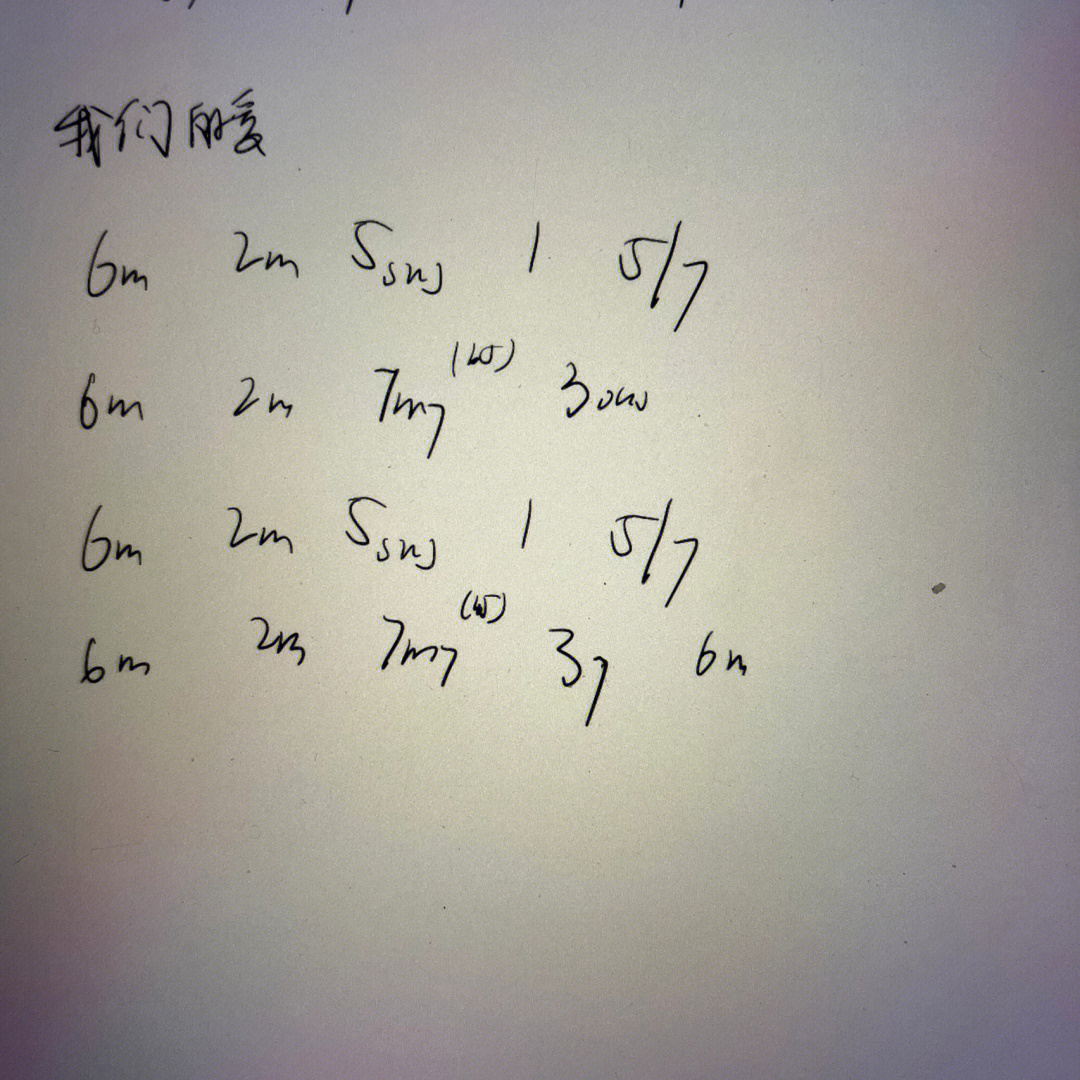 我们的爱
6m 2m 5sus 1 5/7
6m 2m 7m7(b5) 3sus
6m 2m 5sus 1 5/7
6m 2m 7m7(b5) 37 6m